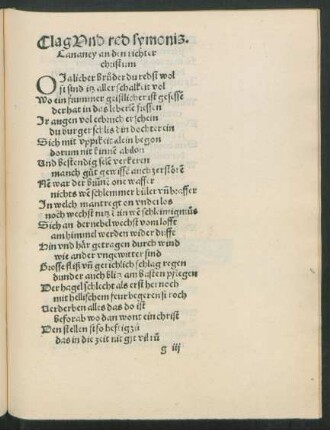 Clag Vnd red symonis.
Cananey an den richter
christum
O Jalicher Brüder du redst wol
si sind itz aller schalkeit vol
Wo ein frummer geistlicher ist gesesse
der hat in das leberle fressen
Ir angen vol eebruch erschein
du burger schlis din dochter ein
Sich mit vppikeit alein begon
dorum nit kinnē abston
Vnd bestendig sele verkeren
manch gůt gewissē auch zerstörē
Nē war der brūnē one waffer
nichts wē schlemmer bůler vn̄ braffer
In welch man tregt on vnderlos
noch wechst nutz in wē schleimigmůs
Sich an der nebel wechst vom lofft
am himmel werden wider dufft
Hin vnd här getragen durch wind
wie ander vngewitter sind
Grosse fliß vn̄ gerichlich schlag regen
dunder auch blitz am basten pflegen
Der hagel schlecht als erst hernoch
mit hellischem feur begerens roch
Verderben alles das do ist
beforab wo dan wont ein christ
Den stellen si so hefftig zů
das in die zeit nit git vil rů
g iij